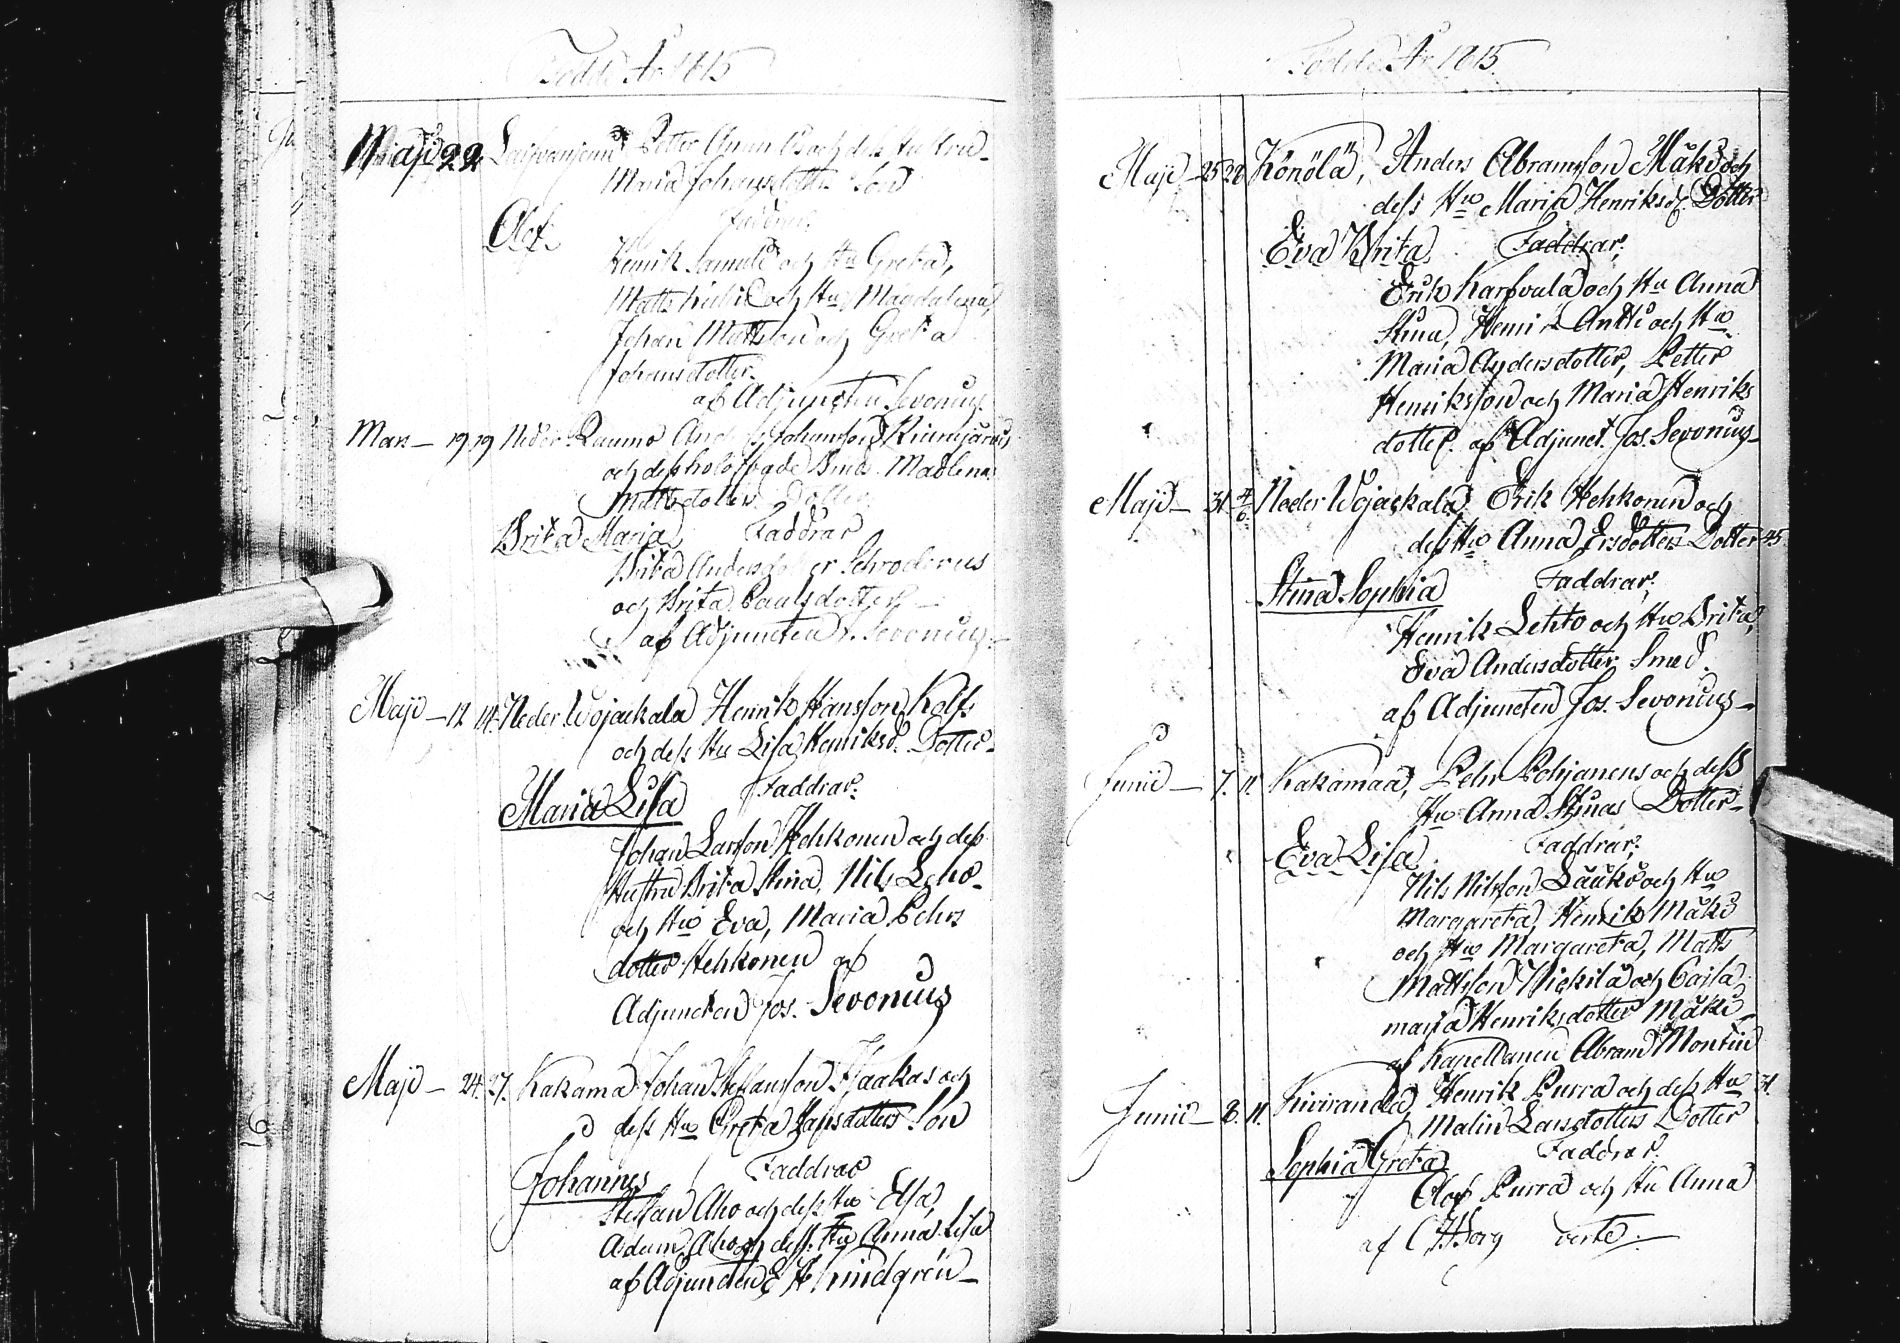 Födde År 1815
Maji 22 Petter och dess Hustru
Maria Johansdotters Son
Olof Faddrar
Henrik och Hu Greta,
Matts och Hu Magdalena,
Johan Mattsson och Greta
Johansdotter.
af Adjuncten Sevonius
19 19 Neder Raumo Johansson
och dess Madlena
Mattsdotter Dotter
Brita Maria Faddrar
Brita Andersdotter Schroderus
och Brita Paulsdotter
af Adjuncten Sevonius
Maji 12 14 Neder Wojackala Henrik Hansson Rolfs
och dess Hu Lisa Henriksd. Dotter
Maria Lisa Faddrar:
Johan Larsson Hehkonen och dess
Hustru Brita Stina, Nils Leho
och Hu Eva, Maria Pehrs
dotter Hehkonen af
Adjuncten Jos. Sevonius
Maji 24. 27. Kakama Johan Staffansson
dess Hu Greta Son
Johannes Faddrar
Staffan Aho och dess Hu Elsa,
Adam Aho och dess Hu Anna Lisa
af Adjuncten E H Lindgren
Födde År 1815.
Maji 25 28 Könölä, Anders Abramsson Mäki och
dess Hu Maria Henriksd. Dotter
Eva Brita Faddrar,
Erik Karfvala och Hu Anna
Stina, Henrik Antti och Hu
Maria Andersdotter, Petter
Henriksson och Maria Henriks
dotter. af Adjunct. Jos. Sevonius
Maji 31 4/6 Neder Wojackala, Erik Hehkonen och
dess Hu Anna Ersdotters Dotter 45
Stina Sophia Faddrar,
Henrik Lehto och Hu Brita,
Eva Andersdotter Smed.
af Adjuncten Jos. Sevonius
Junii 7. 11. Kakamaa, Pehr Pohjanens och dess
Hu Anna Stinas Dotter
Eva Lisa Faddrar,
Nils Nilsson Lääkö och Hu
Margareta, Henrik Mäki
och Hu Margareta, Matts
Mattsson och Cajsa
maria Henriksdotter Mäki
af Kapellanen Abram Montin
Junii 8. 11. Kiviranda, Henrik Purra och dess Hu 31.
Malin Larsdotters Dotter
Sophia Greta Faddrar.
Olof Purra och Hu Anna
af Borg verte.